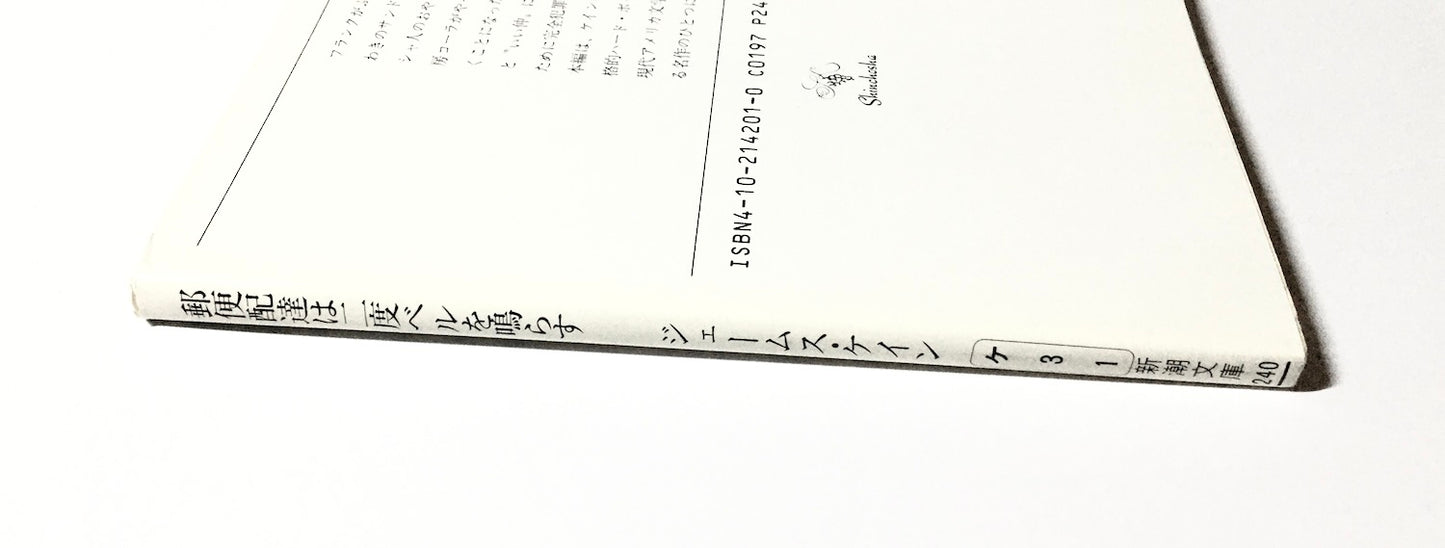 フランクがふ
わきのサンド
シャ人のおや
房コーラがや
くことになった
と“いい仲〟に
ために完全犯罪
本編は、ケイン
格的ハード・ボ
現代アメリカ文
る名作のひとつ
ISBN4-10-214201-0 C0197 P24
Shinchosha
郵便配達は二度ベルを鳴らす ジェームス・ケイン ケ 3 1 新潮文庫 240